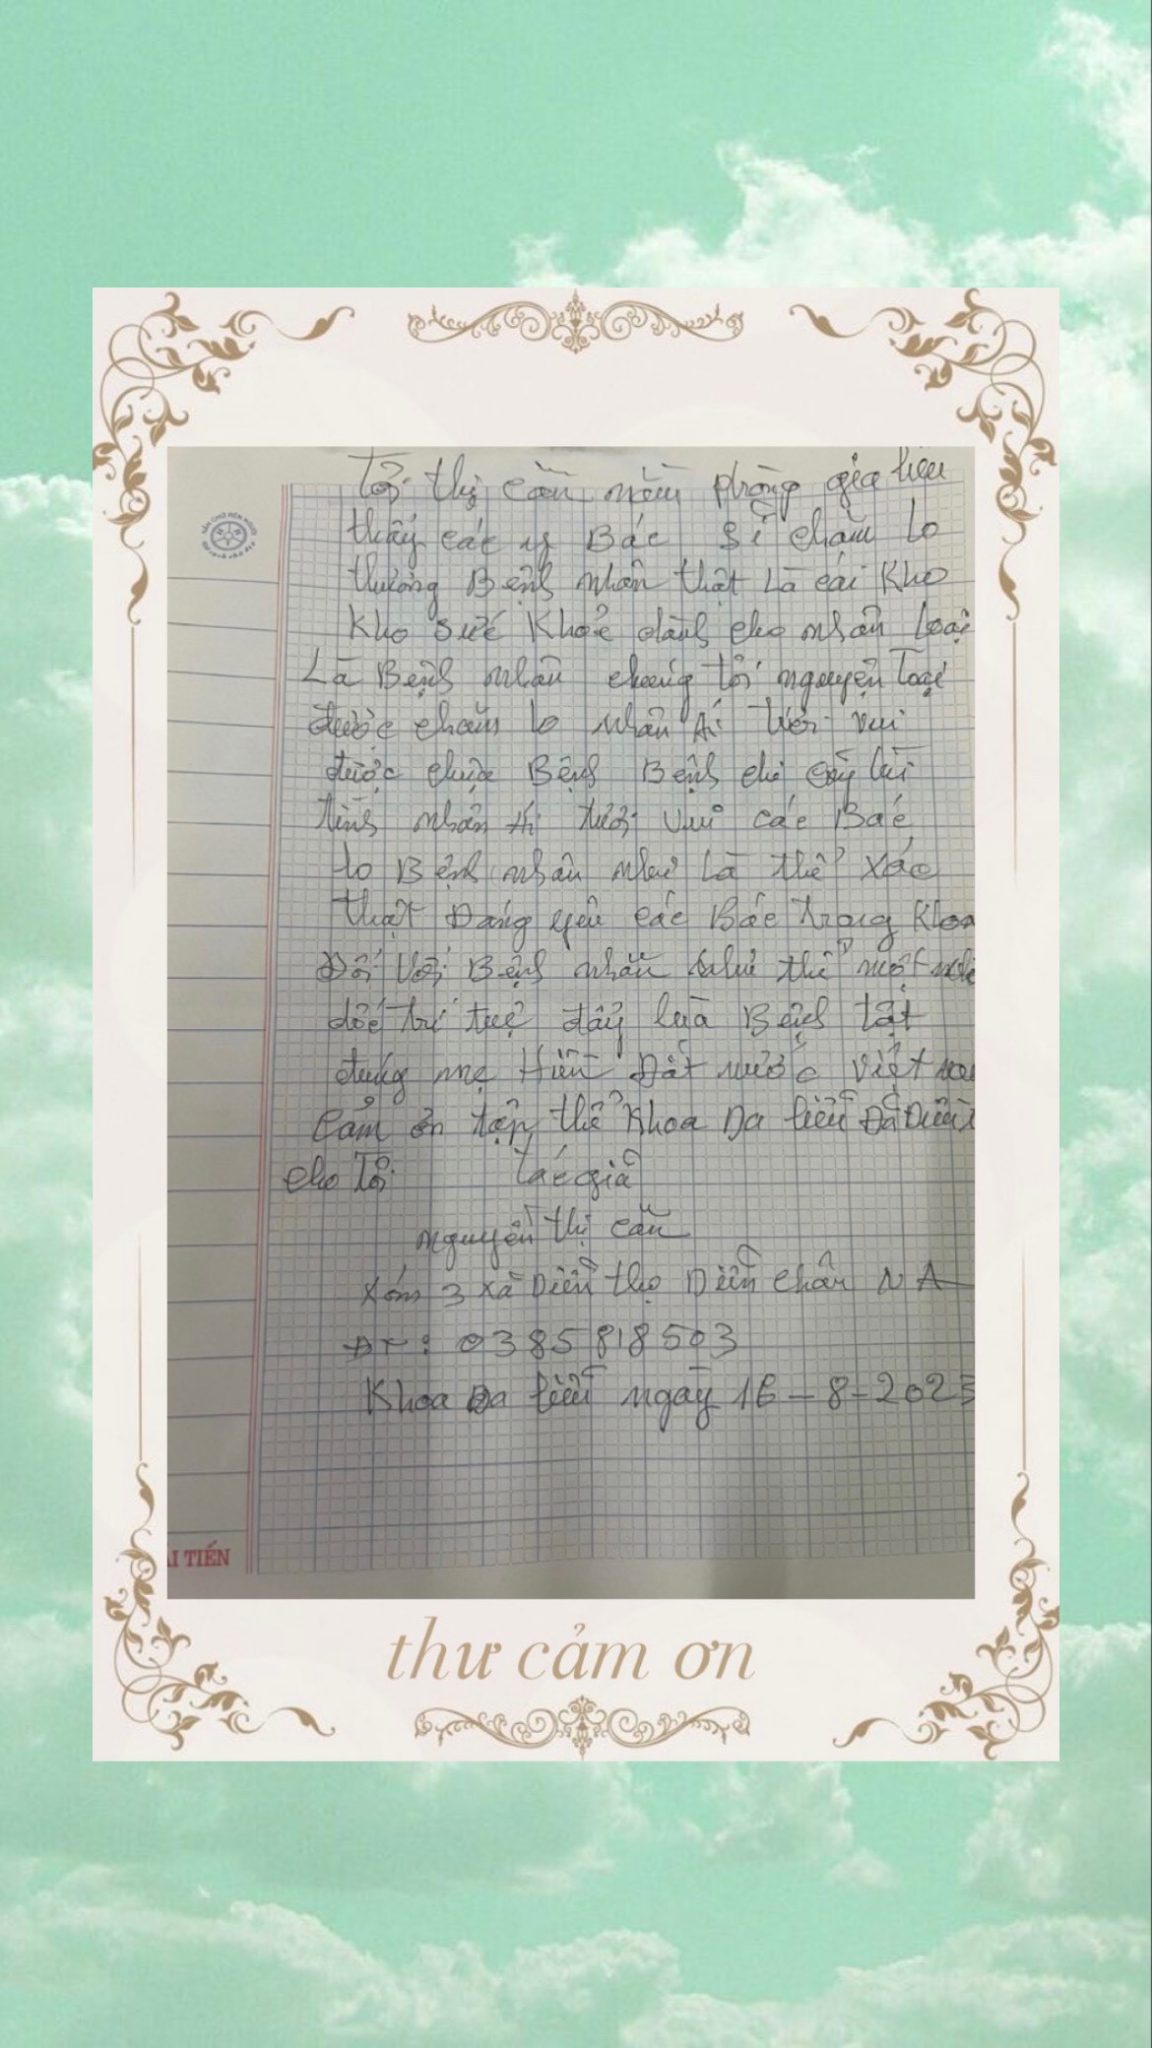 Tôi thị Căn nằm phòng gia liễu
thấy các y Bác sĩ chăm lo
thương Bệnh nhân thật Là cái Kho
Kho sức Khoẻ dành cho nhân loại
Là Bệnh nhân chúng tôi nguyện
được chăm lo nhân Ái tươi vui
được chữa Bệnh Bệnh chi cũng lùi
tính nhân tươi vui các Bác
lo Bệnh nhân như Là thể xác
thật Đáng yêu các Bác trong Khoa
Đối với Bệnh nhân như thể một
dốc trí tuệ đẩy lùa Bệnh tật
đúng mẹ Hiền Đất nước việt
Cảm ơn tập thể Khoa Da liễu Đã
cho Tôi Tác giả
nguyễn thị căn
Xóm 3 xã Diễn thọ Diễn châu N A
ĐT: 0385818503
Khoa Da liễu ngày 16-8-2023
ẢI TIẾN
thư cảm ơn